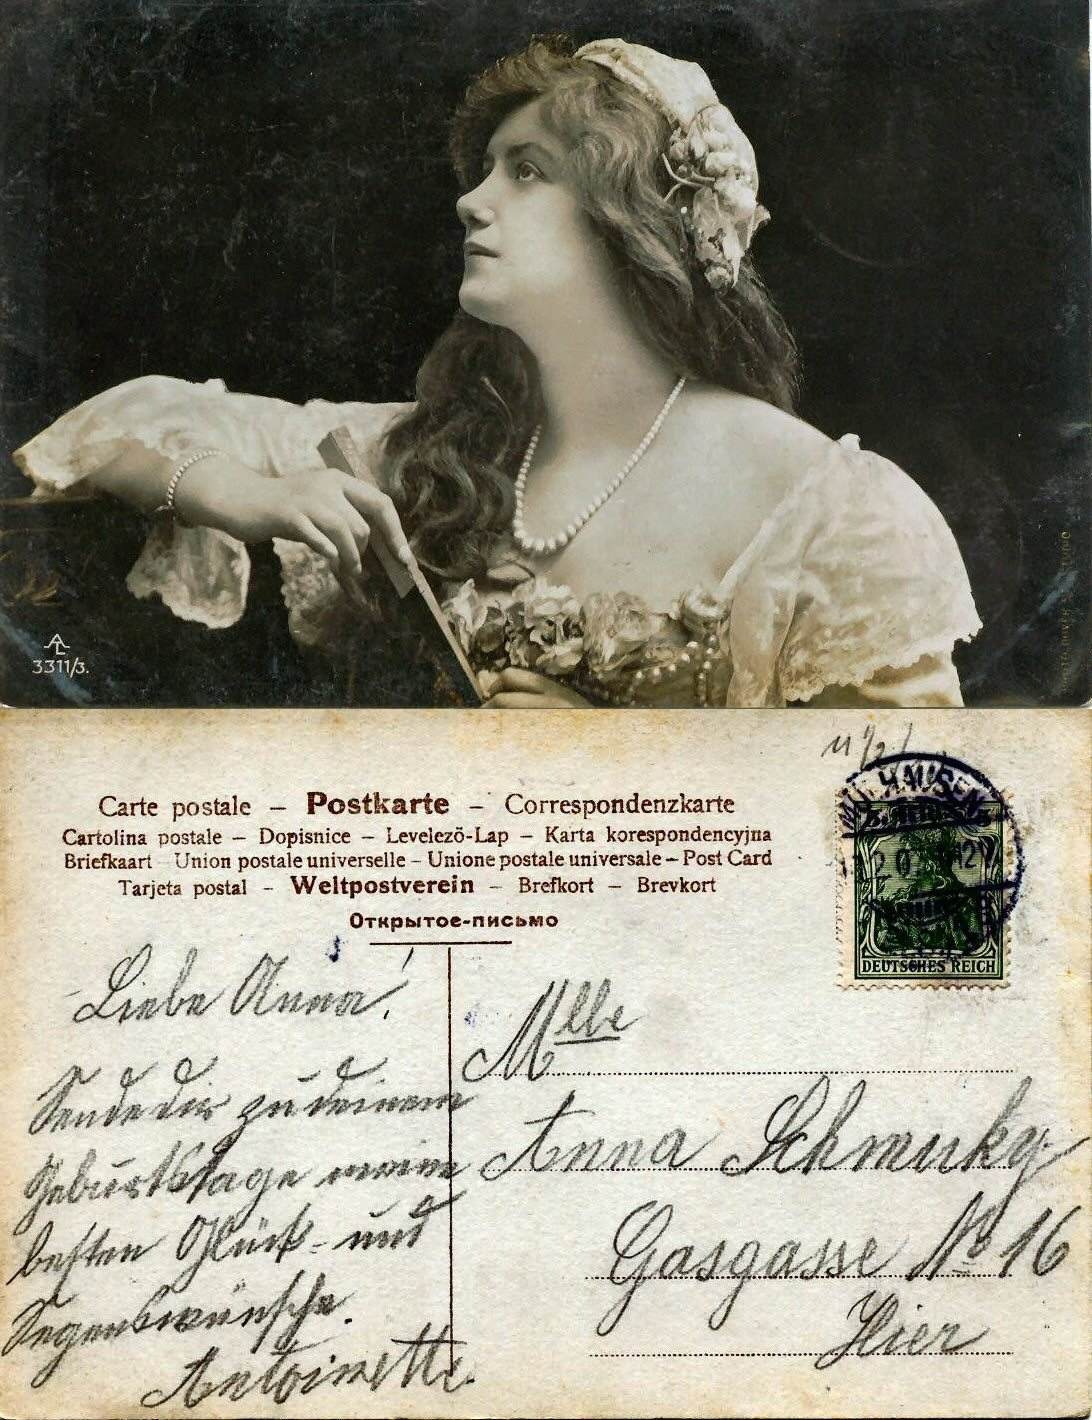 AL
3311/3.
Carte postale – Postkarte – Correspondenzkarte
Cartolina postale – Dopisnice – Levelezö-Lap – Karta korespondencyjna
Briefkaart - Union postale universelle – Unione postale universale – Post Card
Tarjeta postal – Weltpostverein – Brefkort – Brevkort
Открытое-письмо
MÜLHAUSEN
DEUTSCHES REICH
Liebe Anna!
Sende dir zu deinem
Geburtstage meine
besten Glück- und
Segenswünsche.
Antoinette.
Mlle
Anna Schmuky
Gasgasse No 16
Hier